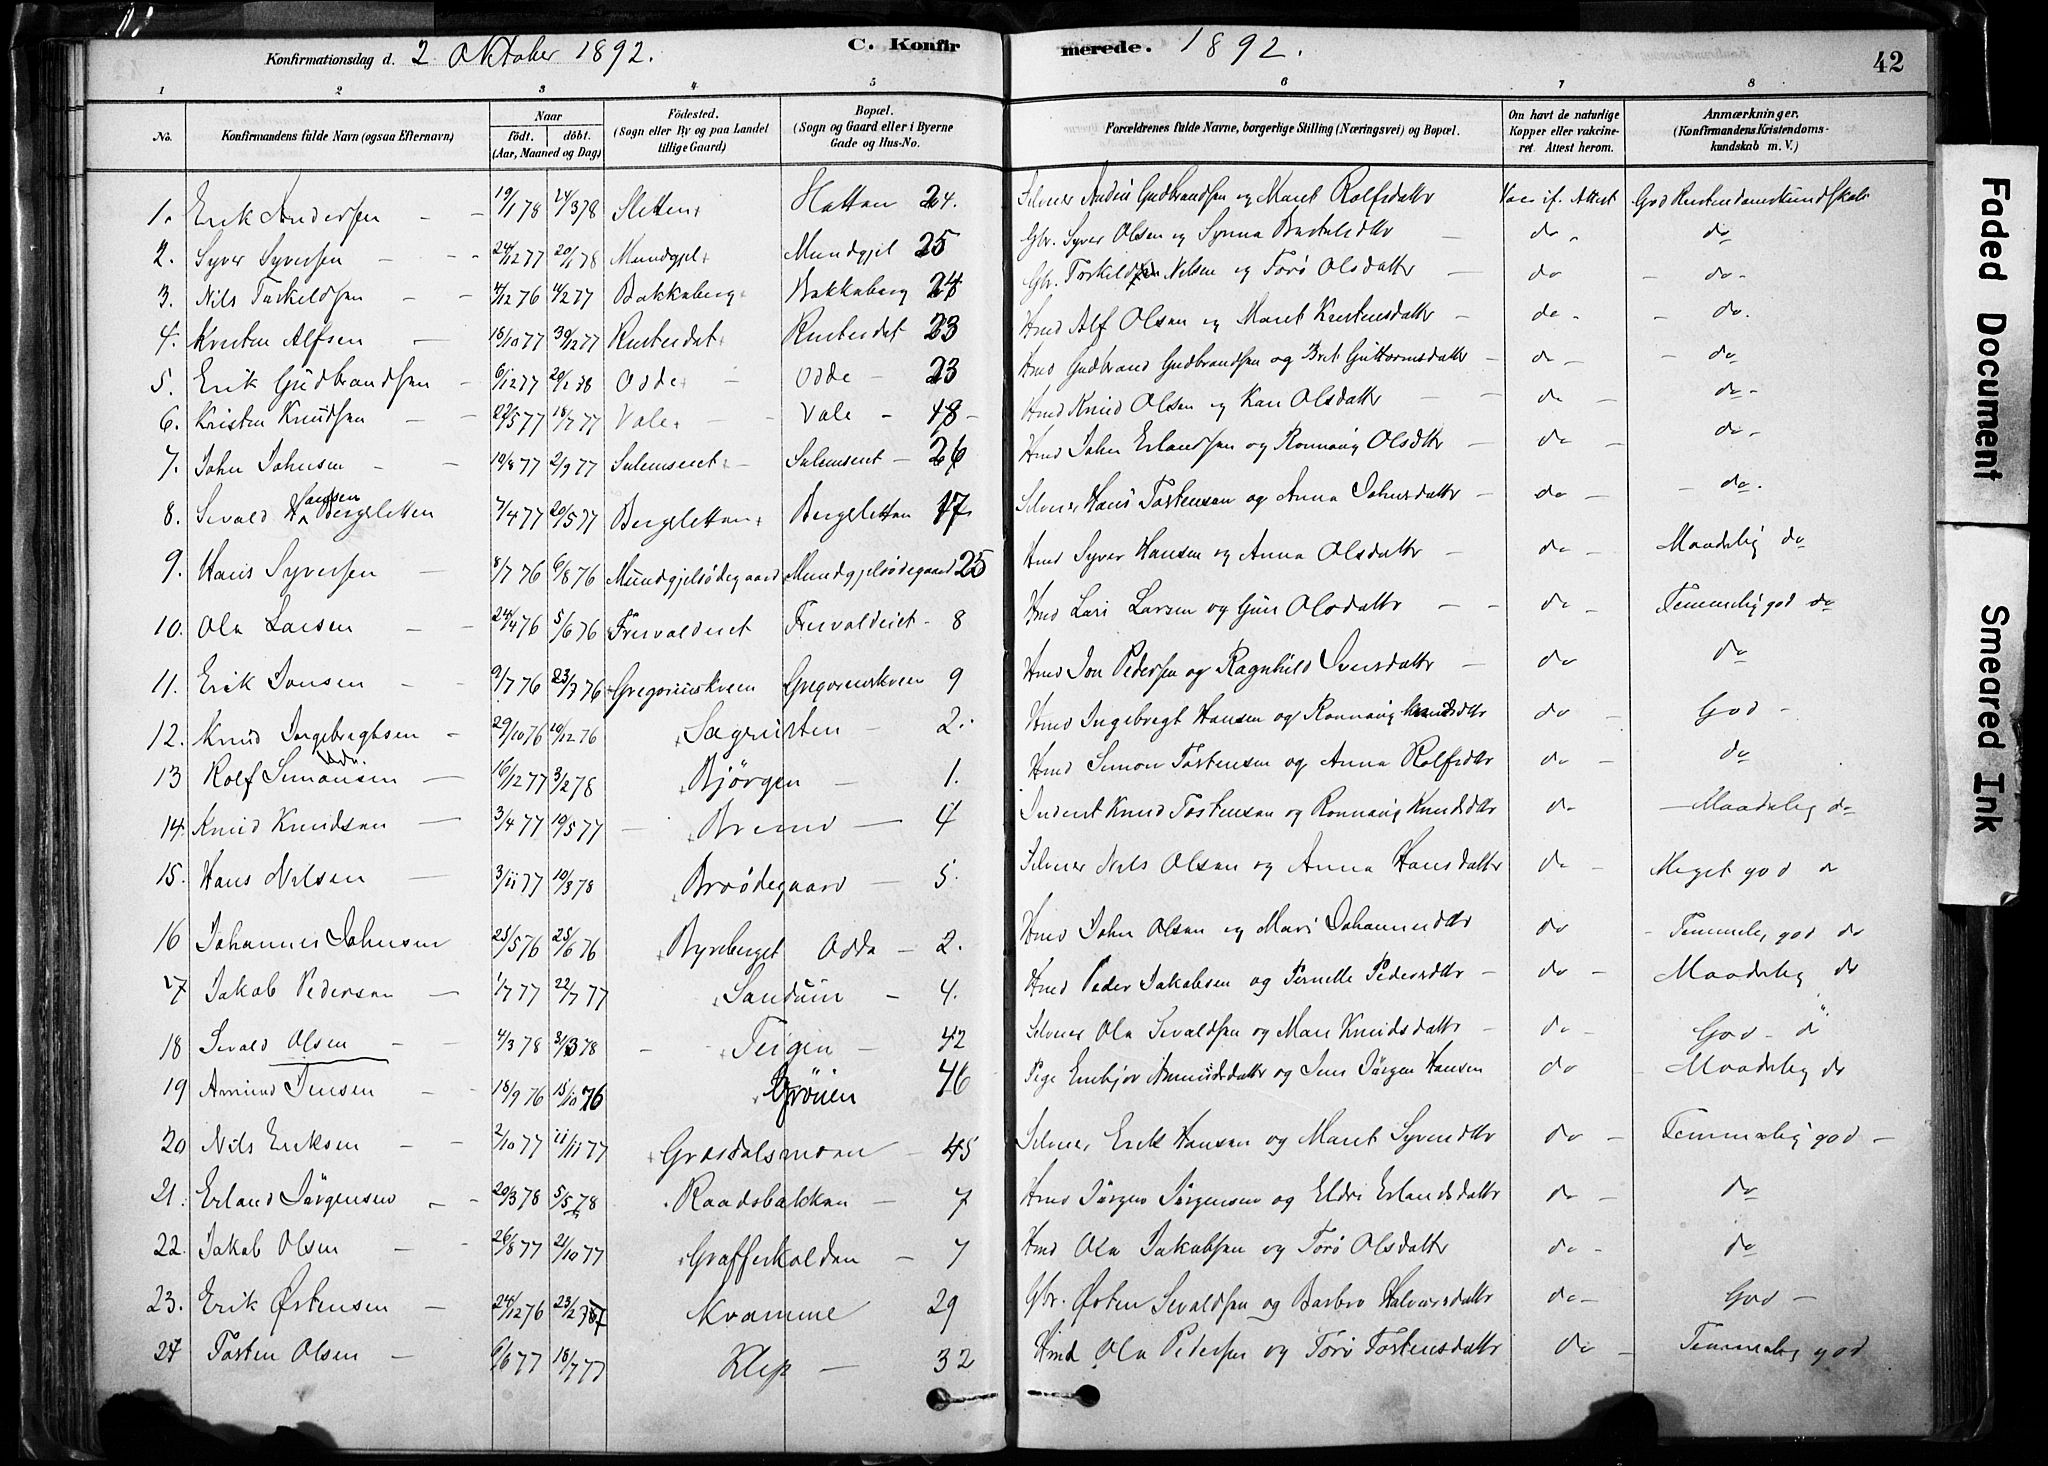 Konfirmationsdag d. 2 Oktober 1892. C. Konfirmerede. 1892. 42
1 2 3 4 5 6 7 8
No. Konfirmandens fulde Navn (ogsaa Efternavn) Naar födt. döbt. (Aar, Maaned og Dag) Födested. (Sogn eller By og paa Landet tillige Gaard) Bopæl. (Sogn og Gaard eller i Byerne Gade og Hus-No. Forældrenes fulde Navne, borgerlige Stilling (Næringsvei) og Bopæl. Om havt de naturlige Kopper eller vakcineret. Attest herom. Anmærkninger. (Konfirmandens Kristendomskundskab m. V.)
1. Erik Andersen 19/1 78 24/3 78 Sletten Hattan 24. Gudbrandsen og Marit Rolfsdattr Vac. if. Attest God Kristendomskundskab
2. Syver Syversen 24/12 77 20/1 78 Mundgjel Mundgjel 25 Gbr. Syver Olsen og Synna do do
3. Nils Torkeldsen 4/12 76 4/2 77 Bakkaberg Bakkaberg 24 Gbr. Torkeld Nilsen og Torö Olsdattr do do
4. Kristen Alfsen 18/10 77 30/12 77 Rusteidet Rusteidet 23 Hmd Alf Olsen og Marit Kristensdattr do do.
5. Erik Gudbrandsen 6/12 77 20/1 78 Odde Odde 23 Hmd Gudbrand Gudbrandsen og Brit Guttormsdattr do do
6. Kristen Knudsen 22/5 77 18/7 77 Vale Vale 48 Hmd Knud Olsen og Kari Olsdattr do do
7. John Johnsen 19/8 77 2/9 77 Sulemseiet Sulemseiet 26 Hmd John Erlandsen og Ronnaug Olsdttr do do
8. Sevald Hansen Bergsletten 7/4 77 20/5 77 Bergslettan Bergslettan 17 Selveier Hans Torstensen og Anna Johnsdattr do do.
9. Hans Syversen 8/7 76 6/8 76 Mundgjelsödegaard Mundgjelsödegaard 25 Hmd Syver Hansen og Anna Olsdattr do Maadelig do
10. Ola Larsen 24/4 76 5/6 76 Frisvoldeiet Frisvoldeiet 8 Hmd Lars Larsen og Guri Olsdattr do Temmelig god do
11. Erik Jonsen 9/7 76 23/7 76 Gregoriuskveen Gregoriuskveen 9 Hmd Jon Pedersen og Ragnhild Iversdattr do do
12. Knud Ingebregtsen 29/10 76 10/12 76 Sagrusten 2. Hmd Ingebregt Hansen og Ronnaug Knudsdttr do God
13 Rolf Simonsen 16/12 77 3/2 78 Bjørgen 1. Hmd Simon Torstensen og Anna Rolfsdttr do do
14. Knud Knudsen 3/4 77 10/5 77 4 Inderst Knud Torstensen og Ronnaug Knudsdttr do Maadelig do
15. Hans Nilsen 3/11 77 10/3 78 Broödegaard 5. Selveier Nils Olsen og Anna Hansdattr do Meget god
16 Johannes Johnsen 25/5 76 25/6 76 Byreberget Odda 2. Hmd John Olsen og Mari Johannesdttr do Temmelig god do
17 Jakob Pedersen 1/7 77 22/7 77 Sandum 4. Hmd Peder Jakobsen og Pernelle Pedersdttr do Maadelig do
18 Sevald Olsen 4/3 78 3/3 78 Teigen 42 Selveier Ola Sevaldsen og Mari Knudsdattr do God
19 Amund Jensen 18/9 76 15/10 76 Grönen 46 Pige Embjør Amundsdattr og Jens Jörgen Hansen do Maadelig do
20 Nils Eriksen 2/10 77 11/11 77 Græsdalsmoen 45 Selveier Erik Hansen og Marit Syversdttr do Temmelig god
21. Erland Jörgensen 20/3 78 5/5 78 Raadsbakken 7 Hmd Jörgen Jörgensen og Eldri Erlandsdattr do do
22. Jakob Olsen 26/8 77 21/10 77 Grafferkolden 7 Hmd Ola Jakobsen og Torö Olsdattr do do
23. Erik Østensen 24/12 76 23/2 77 Kvamme 29 Gbr. Østen Sevaldsen og Barbro Halvorsdattr do God
24 Torsten Olsen 6/6 77 18/7 77 Klep 32 Hmd Ola Pedersen og Torö Torstensdattr do Temmelig god
Faded Document
Smeared Ink